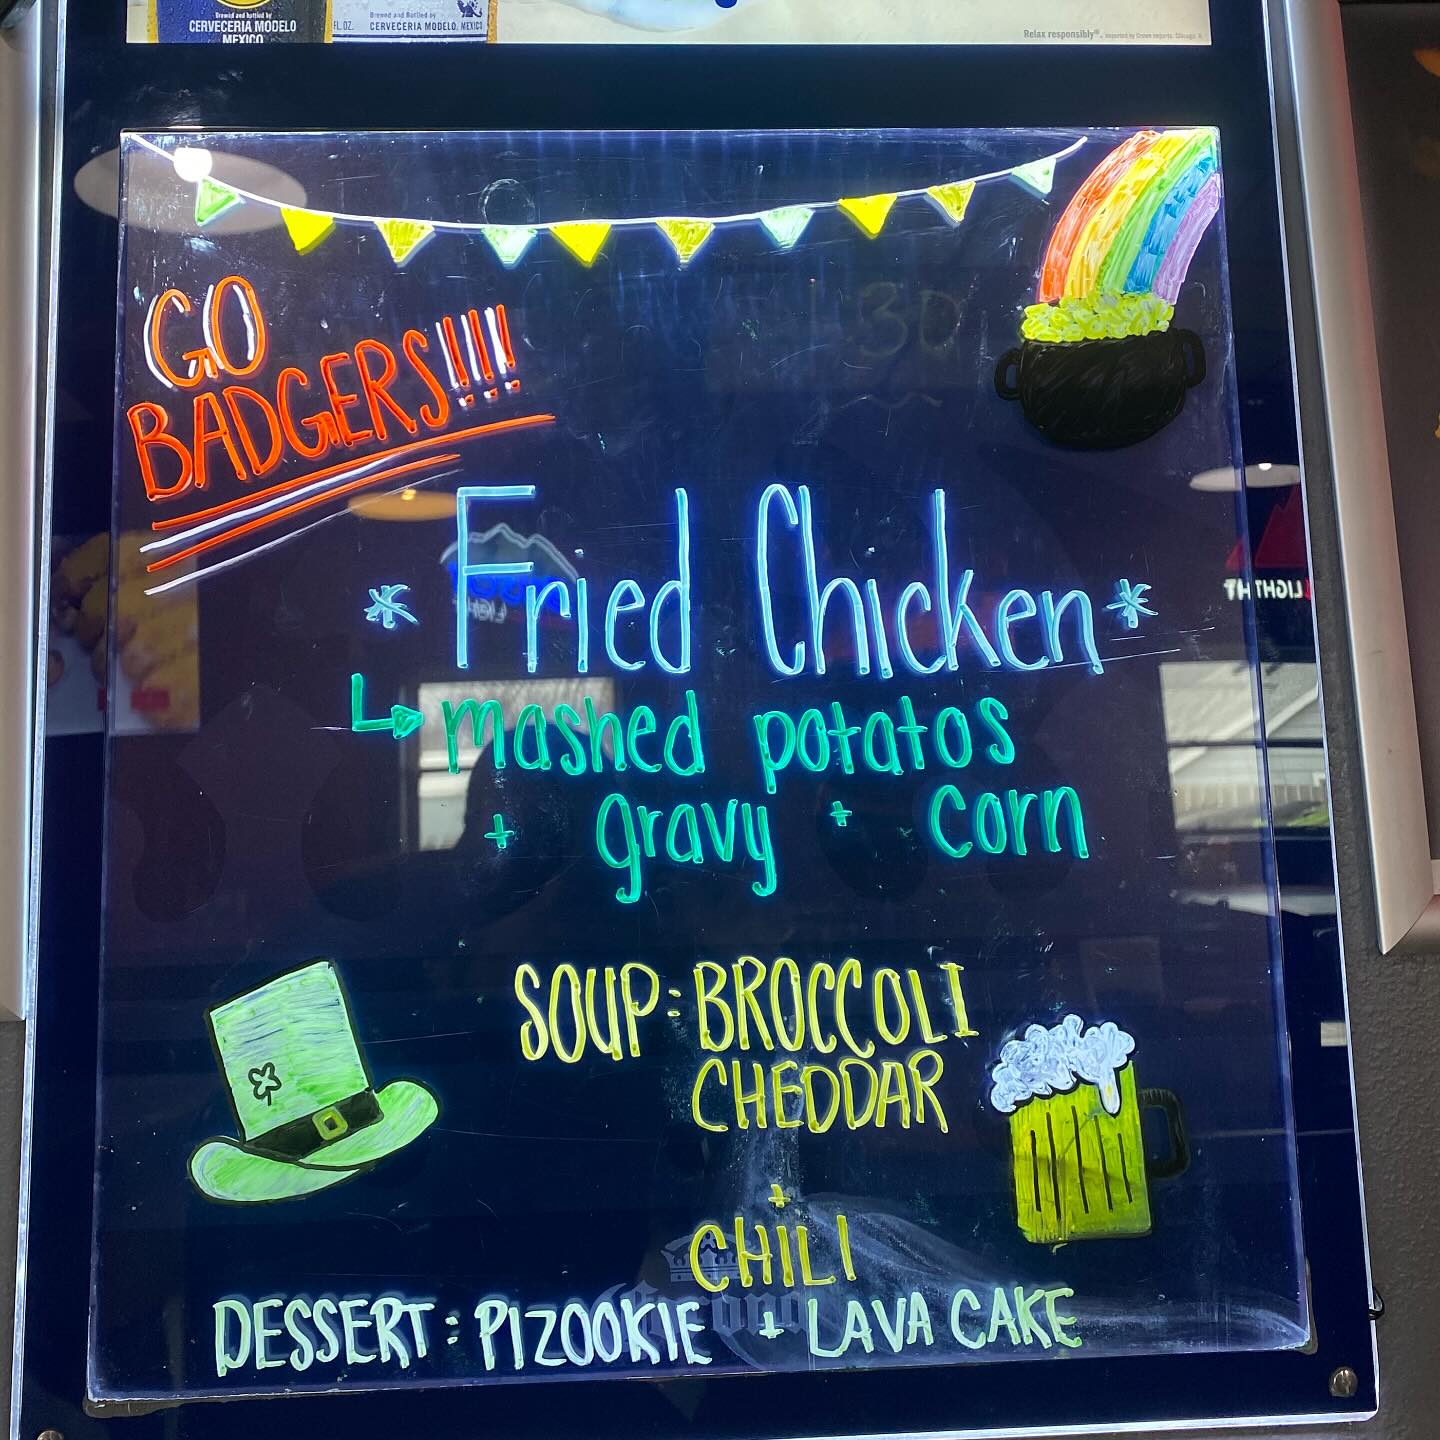 Brewed and bottled by
CERVECERIA MODELO
MEXICO
FL.OZ.
Brewed and Bottled by
CERVECERIA MODELO, MEXICO
Relax responsibly®.
GO
BADGERS!!!!
:30
* Fried Chicken *
mashed potatos
+ gravy + corn
SOUP: BROCCOLI
CHEDDAR
+
CHILI
DESSERT: PIZOOKIE + LAVA CAKE
Corona
LIGHT